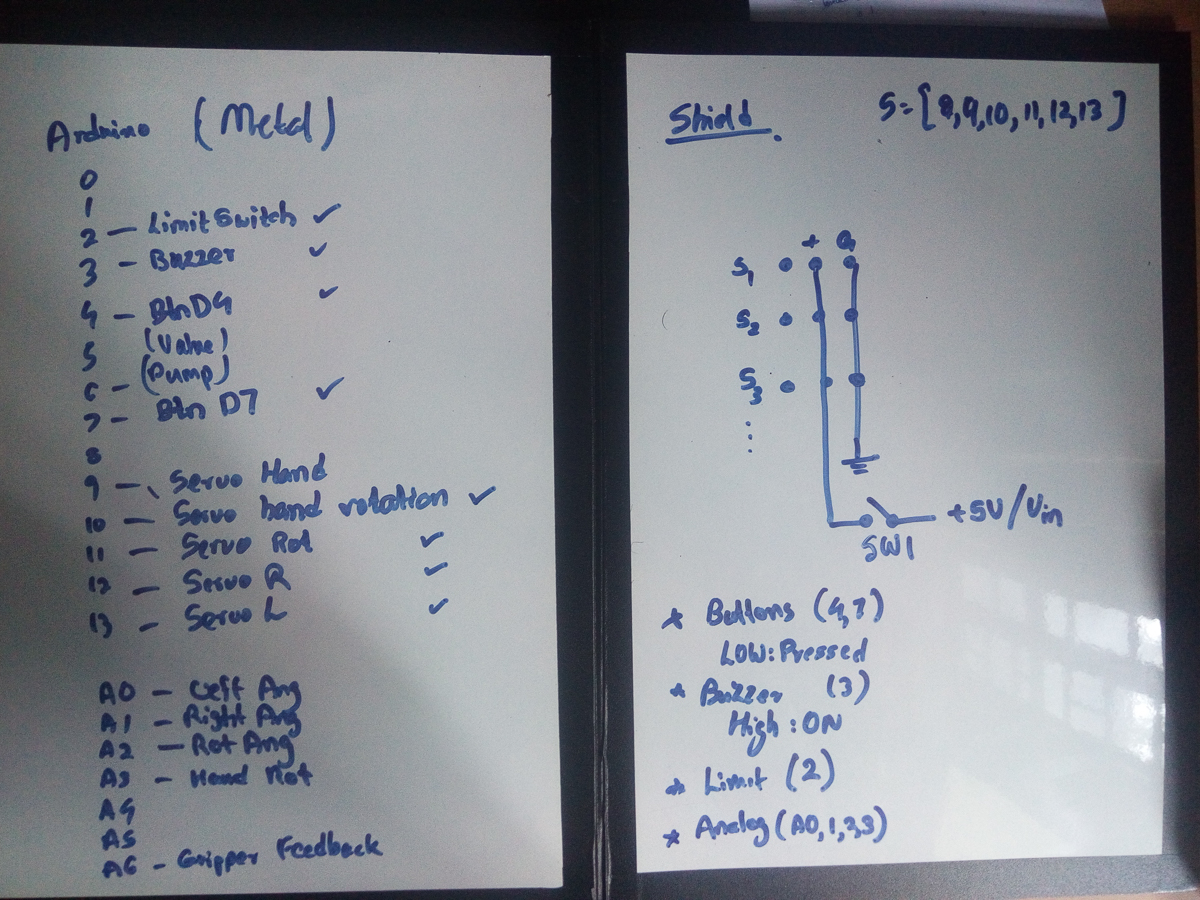 Arduino (Metal)
0
1
2 — Limit Switch ✓
3 - Buzzer ✓
4 - Btn D4 ✓
5 (Valve)
6 - (Pump)
7 - Btn D7 ✓
8
9 - Servo Hand
10 - Servo hand rotation ✓
11 - Servo Rot ✓
12 - Servo R ✓
13 - Servo L ✓
A0 - Left Ang
A1 - Right Ang
A2 - Rot Ang
A3 - Hand Rot
A4
A5
A6 - Gripper Feedback
Shield.
S=[8,9,10,11,12,13]
+ G
S1
S2
S3
⋮
+5V/Vin
SW1
* Buttons (4,7)
LOW: Pressed
* Buzzer (3)
High: ON
* Limit (2)
* Analog (A0,1,2,3)